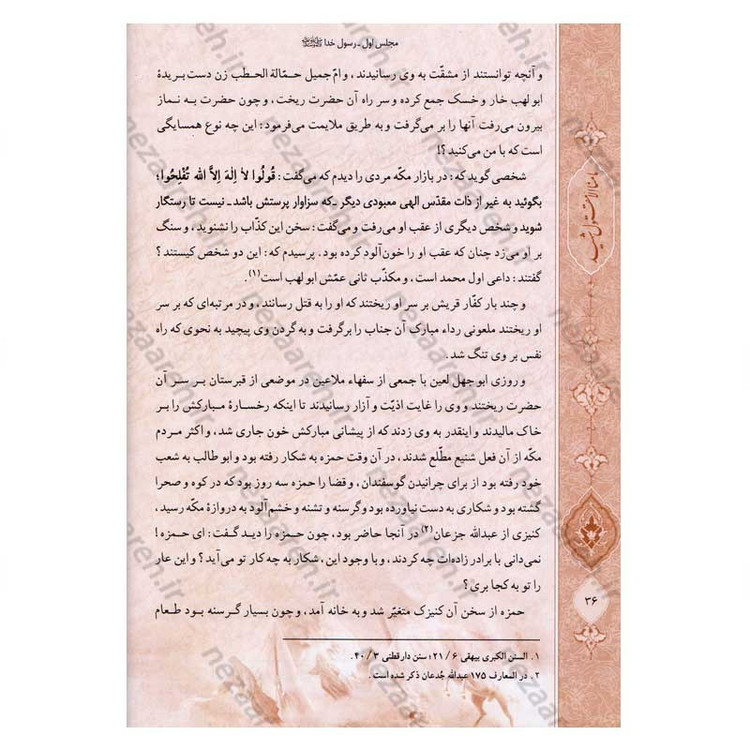 مجلس اول ـ رسول خدا ﷺ
و آنچه توانستند از مشقّت به وی رسانیدند، و امّ جمیل حمّالة الحطب زن دست بریدۀ
ابو لهب خار و خسک جمع کرده و سر راه آن حضرت ریخت، و چون حضرت به نماز
بیرون می‌رفت آنها را بر می‌گرفت و به طریق ملایمت می‌فرمود: این چه نوع همسایگی
است که با من می‌کنید؟!
شخصی گوید که: در بازار مکّه مردی را دیدم که می‌گفت: قُولُوا لاٰ اِلٰهَ اِلاَّ اللّٰه تُفْلِحُوا؛
بگوئید به غیر از ذات مقدّس الهی معبودی دیگر ـ که سزاوار پرستش باشد ـ نیست تا رستگار
شوید و شخص دیگری از عقب او می‌رفت و می‌گفت: سخن این کذّاب را نشنوید، و سنگ
بر او می‌زد چنان که عقب او را خون‌آلود کرده بود. پرسیدم که: این دو شخص کیستند؟
گفتند: داعی اول محمد است، و مکذّب ثانی عمّش ابو لهب است(۱).
و چند بار کفّار قریش بر سر او ریختند که او را به قتل رسانند، و در مرتبه‌ای که بر سر
او ریختند ملعونی رداء مبارک آن جناب را برگرفت و به گردن وی پیچید به نحوی که راه
نفس بر وی تنگ شد.
و روزی ابو جهل لعین با جمعی از سفهاء ملاعین در موضعی از قبرستان بر سر آن
حضرت ریختند و وی را غایت اذیّت و آزار رسانیدند تا اینکه رخسارۀ مبارکش را بر
خاک مالیدند و اینقدر به وی زدند که از پیشانی مبارکش خون جاری شد، و اکثر مردم
مکّه از آن فعل شنیع مطّلع شدند، در آن وقت حمزه به شکار رفته بود و ابو طالب به شعب
خود رفته بود از برای چرانیدن گوسفندان، و قضا را حمزه سه روز بود که در کوه و صحرا
گشته بود و شکاری به دست نیاورده بود و گرسنه و تشنه و خشم‌آلود به دروازۀ مکّه رسید،
کنیزی از عبدالله جزعان(۲) در آنجا حاضر بود، چون حمزه را دید گفت: ای حمزه!
نمی‌دانی با برادر زاده‌ات چه کردند، و با وجود این، شکار به چه کار تو می‌آید؟ و این عار
را تو به کجا بری؟
حمزه از سخن آن کنیزک متغیّر شد و به خانه آمد، و چون بسیار گرسنه بود طعام
۱. السنن الکبری بیهقی ۶ / ۲۱؛ سنن دارقطنی ۳ / ۴۰.
۲. در المعارف ۱۷۵ عبدالله جُدعان ذکر شده است.
۳۶
nezaareh.ir